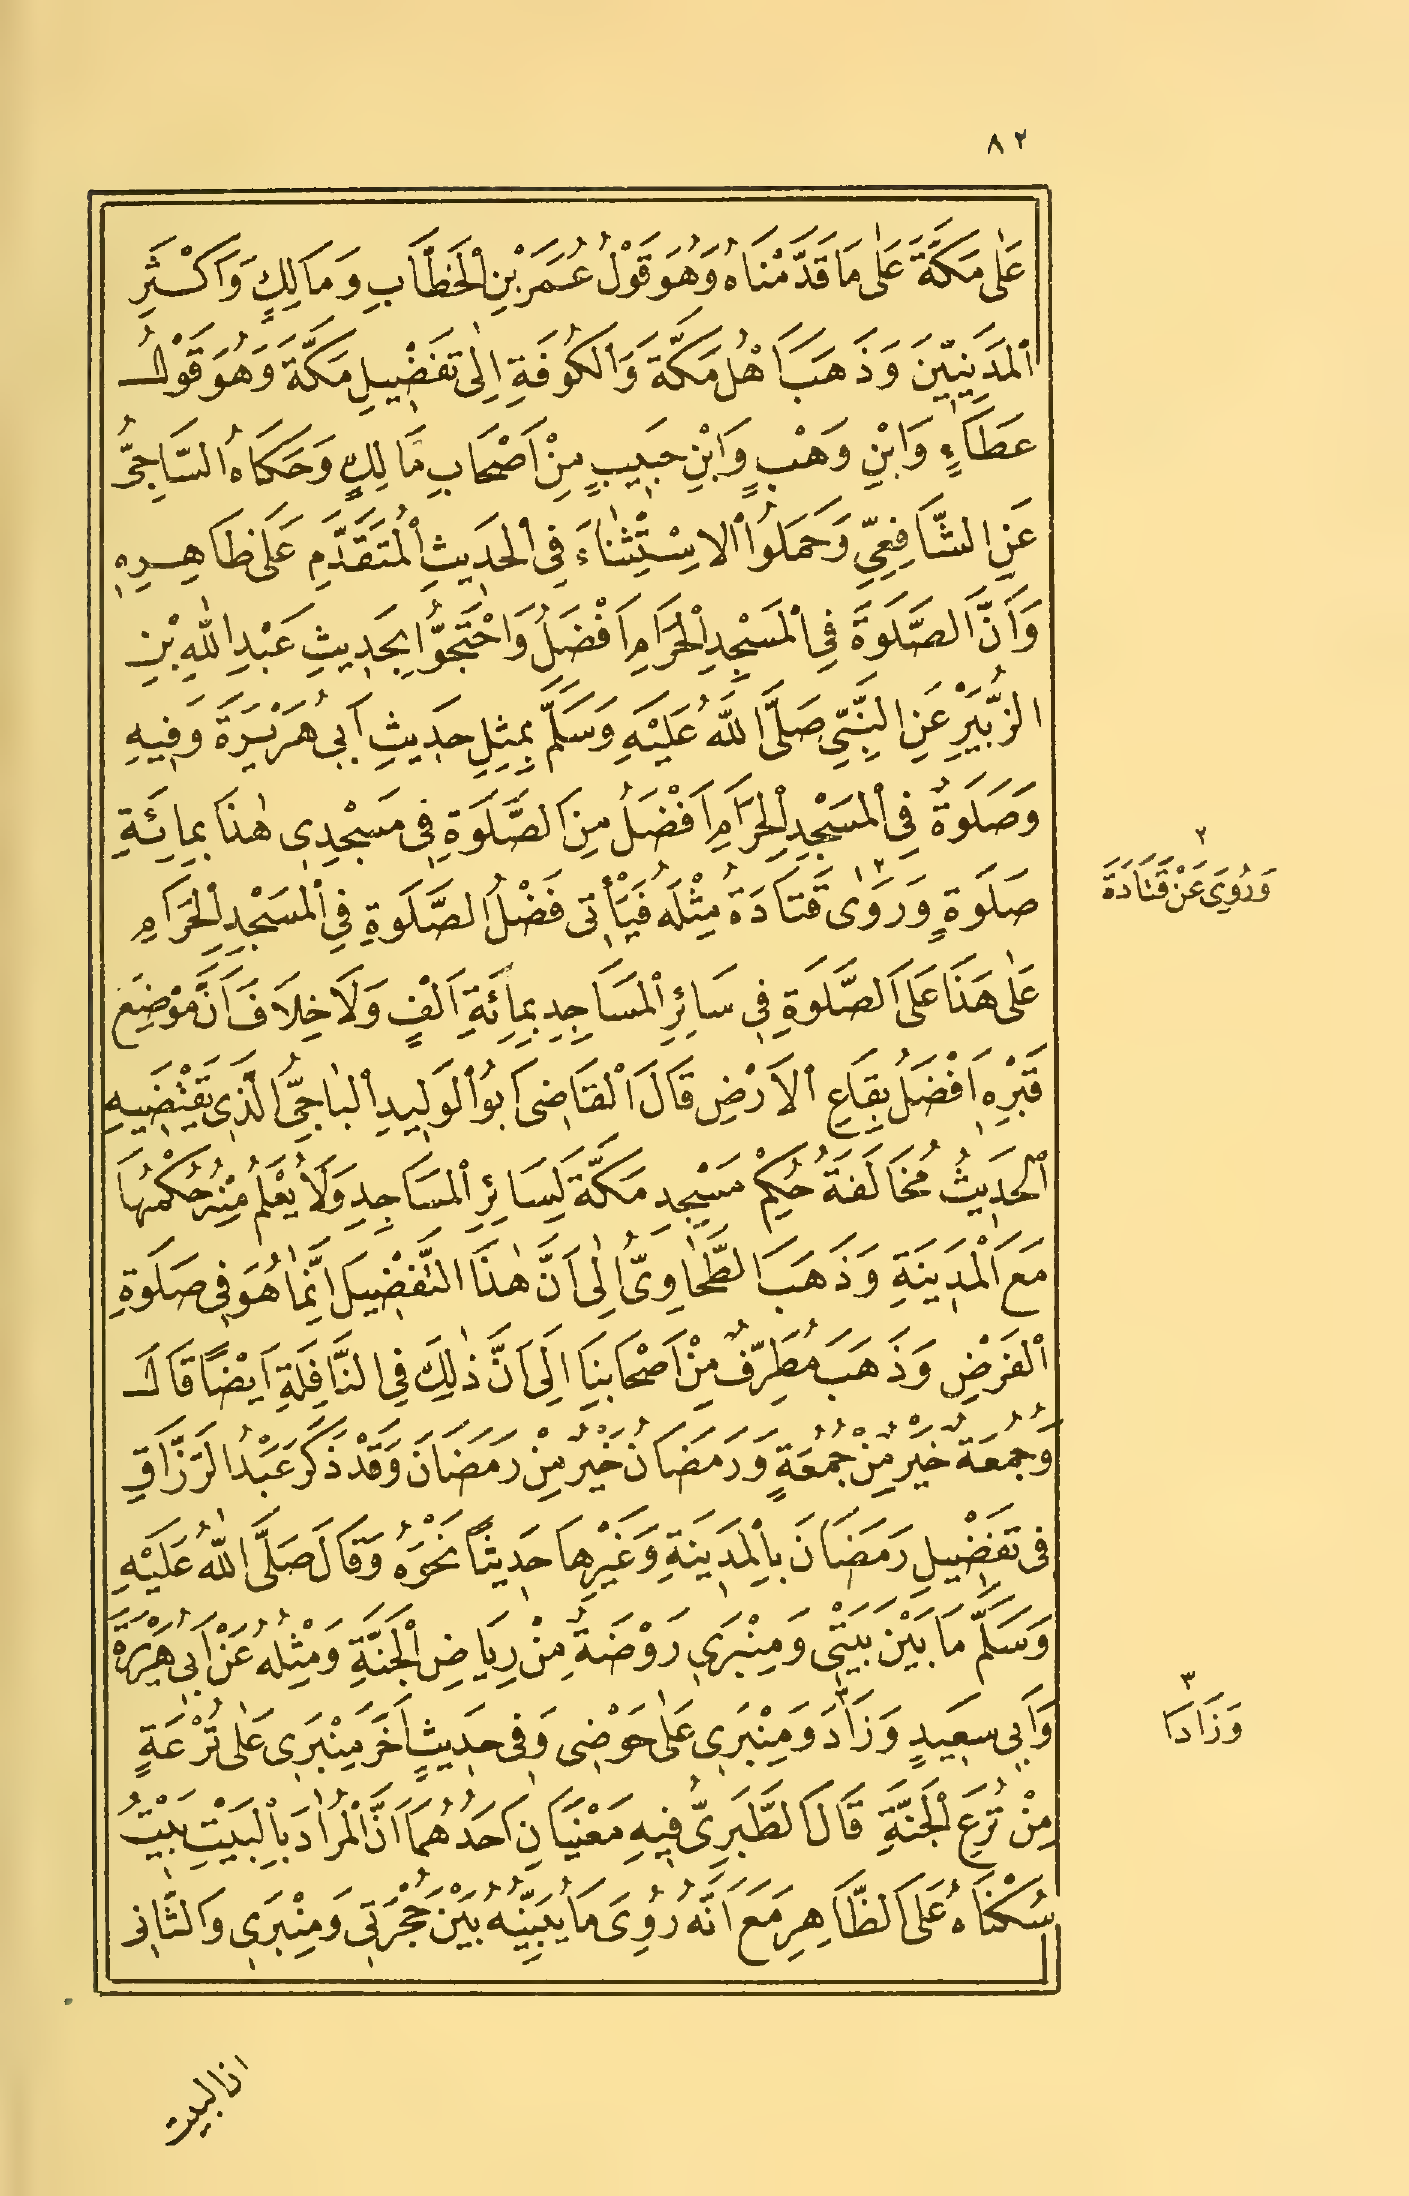 ٨٢
عَلٰى مَكَّةَ عَلٰى مَا قَدَّمْنَاهُ وَهُوَ قَوْلُ عُمَرَ بْنِ الْخَطَّابِ وَمَالِكٍ وَاَكْثَرِ
الْمَدَنِيِّينَ وَذَهَبَ اَهْلُ مَكَّةَ وَالْكُوفَةِ اِلٰى تَفْضِيلِ مَكَّةَ وَهُوَ قَوْلُ
عَطَاءٍ وَابْنِ وَهْبٍ وَابْنِ حَبِيبٍ مِنْ اَصْحَابِ مَالِكٍ وَحَكَاهُ السَّاجِىُّ
عَنِ الشَّافِعِيِّ وَحَمَلُوا الْاِسْتِثْنَاءَ فِى الْحَدِيثِ الْمُتَقَدَّمِ عَلَى ظَاهِرِهِ
وَاَنَّ الصَّلَوةَ فِى الْمَسْجِدِ الْحَرَامِ اَفْضَلُ وَاحْتَجُّوا بِحَدِيثِ عَبْدِ اللّٰهِ بْنِ
الزُّبَيْرِ عَنِ النَّبِىِّ صَلَّى اللّٰهُ عَلَيْهِ وَسَلَّمَ بِمِثْلِ حَدِيثِ اَبِى هُرَيْرَةَ وَفِيهِ
وَصَلَوةٌ فِى الْمَسْجِدِ الْحَرَامِ اَفْضَلُ مِنَ الصَّلَوةِ فِى مَسْجِدِى هٰذَا بِمِائَةِ
صَلَوةٍ وَرَوٰى قَتَادَةُ مِثْلَهُ فَيَأْتِى فَضْلُ الصَّلَوةِ فِى الْمَسْجِدِ الْحَرَامِ
٢
وَرُوِىَ عَنْ قَتَادَةَ
عَلٰى هَذَا عَلَى الصَّلَوةِ فِى سَائِرِ الْمَسَاجِدِ بِمِائَةِ اَلْفٍ وَلَا خِلَافَ اَنَّ مَوْضِعَ
قَبْرِهِ اَفْضَلُ بِقَاعِ الْاَرْضِ قَالَ الْقَاضِى اَبُو الْوَلِيدِ الْبَاجِىُّ الَّذِى يَقْتَضِيهِ
الْحَدِيثُ مُخَالَفَةُ حُكِمْ مَسْجِدِ مَكَّةَ لِسَائِرِ الْمَسَاجِدِ وَلَا يُعْلَمُ مِنْهُ حُكْمُهَا
مَعَ الْمَدِينَةِ وَذَهَبَ الطَّحَاوِىُّ اِلٰى اَنَّ هٰذَا التَّفْضِيلَ اِنَّمَا هُوَ فِى صَلَوةِ
الْفَرْضِ وَذَهَبَ مُطَرِّفٌ مِنْ اَصْحَابِنَا اِلَى اَنَّ ذٰلِكَ فِى النَّافِلَةِ اَيْضًا قَالَ
وَجُمُعَةٌ خَيْرٌ مِنْ جُمُعَةٍ وَرَمَضَانُ خَيْرٌ مِنْ رَمَضَانَ وَقَدْ ذَكَرَ عَبْدُ الرَّزَّاقِ
فِى تَفْضِيلِ رَمَضَانَ بِالْمَدِينَةِ وَغَيْرِهَا حَدِيثًا نَحْوَهُ وَقَالَ صَلَّى اللّٰهُ عَلَيْهِ
وَسَلَّمَ مَا بَيْنَ بَيْتِى وَمِنْبَرِى رَوْضَةٌ مِنْ رِيَاضِ الْجَنَّةِ وَمِثْلُهُ عَنْ اَبِى هُرَيْرَةَ
وَاَبِى سَعِيدٍ وَزَادَ وَمِنْبَرِى عَلٰى حَوْضِى وَفِى حَدِيثٍ اٰخَرَ مِنْبَرِى عَلٰى تُرْعَةٍ
٣
وَزَادَا
مِنْ تُرَعِ الْجَنَّةِ قَالَ الطَّبَرِىُّ فِيهِ مَعْنَيَانِ اَحَدُهُمَا اَنَّ الْمُرَادَ بِالْبَيْتِ بَيْتُ
سُكْنَاهُ عَلَى الظَّاهِرِ مَعَ اَنَّهُ رُوِىَ مَا يُبَيِّنُهُ بَيْنَ حُجْرَتِى وَمِنْبَرِى وَالثَّانِى
ان البيت